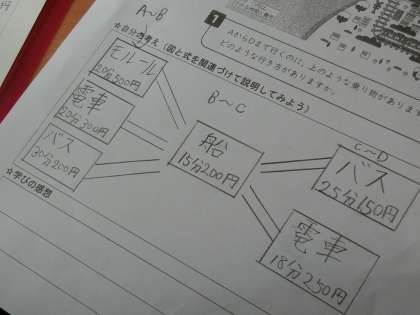 A~B
1
AからDまで行くのに、上のような乗り物があります。
どのような行き方がありますか。
★自分の考え（図と式を関連づけて説明してみよう）
モルール
20分500円
電車
20分300円
バス
30分200円
B~C
船
15分200円
C~D
バス
25分150円
電車
18分250円
★学びの感想